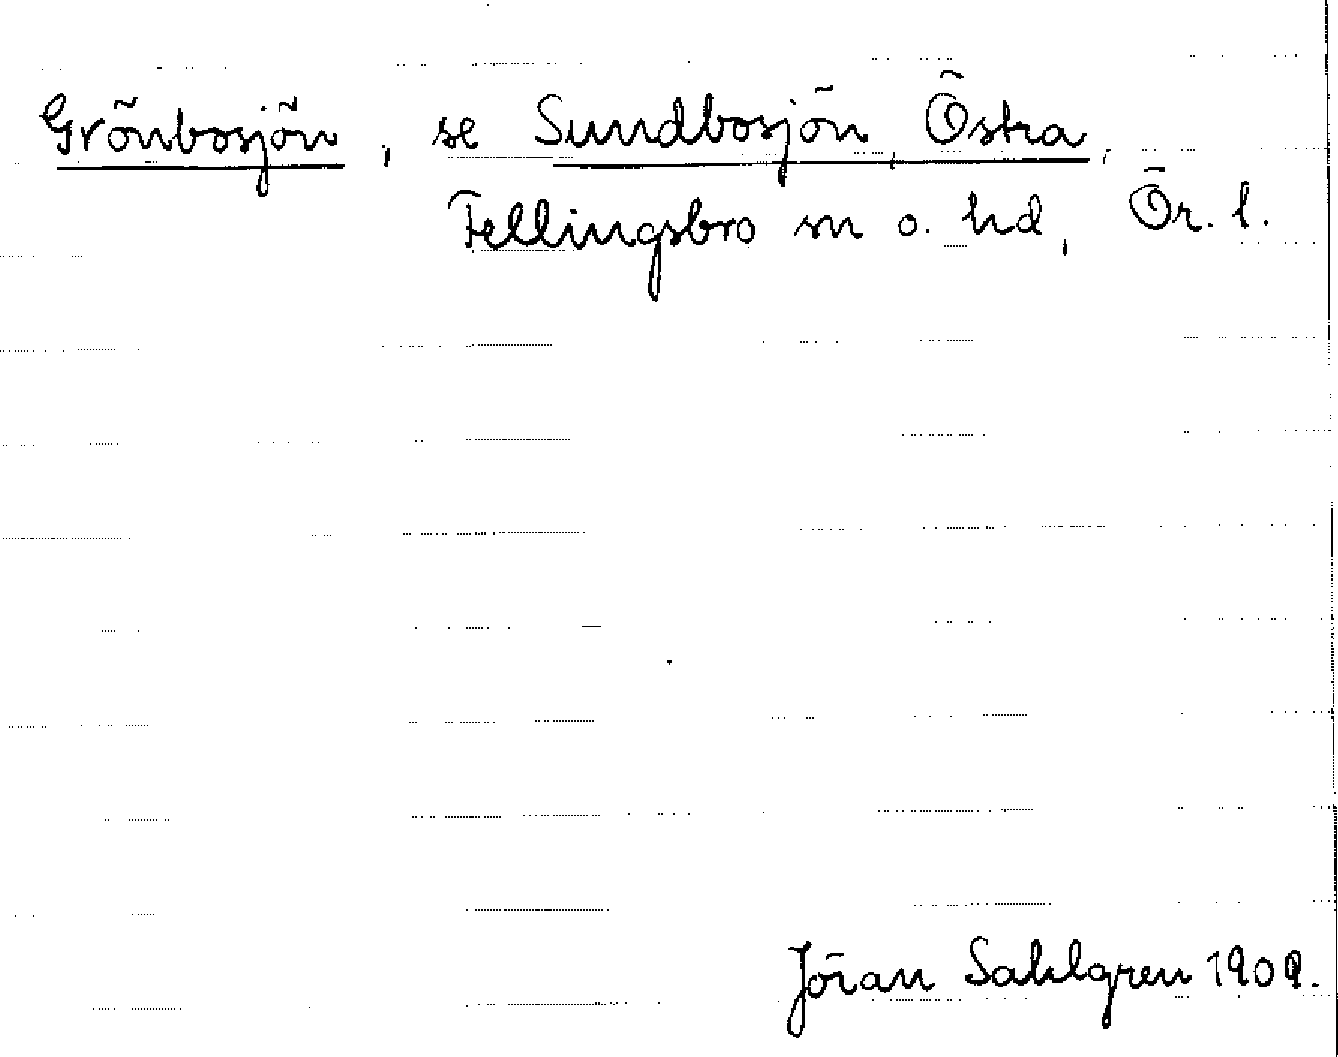 Grönbosjön, se Sundbosjön, Östra,
Fellingsbro sn o. hd, Ör. l.
Jöran Sahlgren 1909.